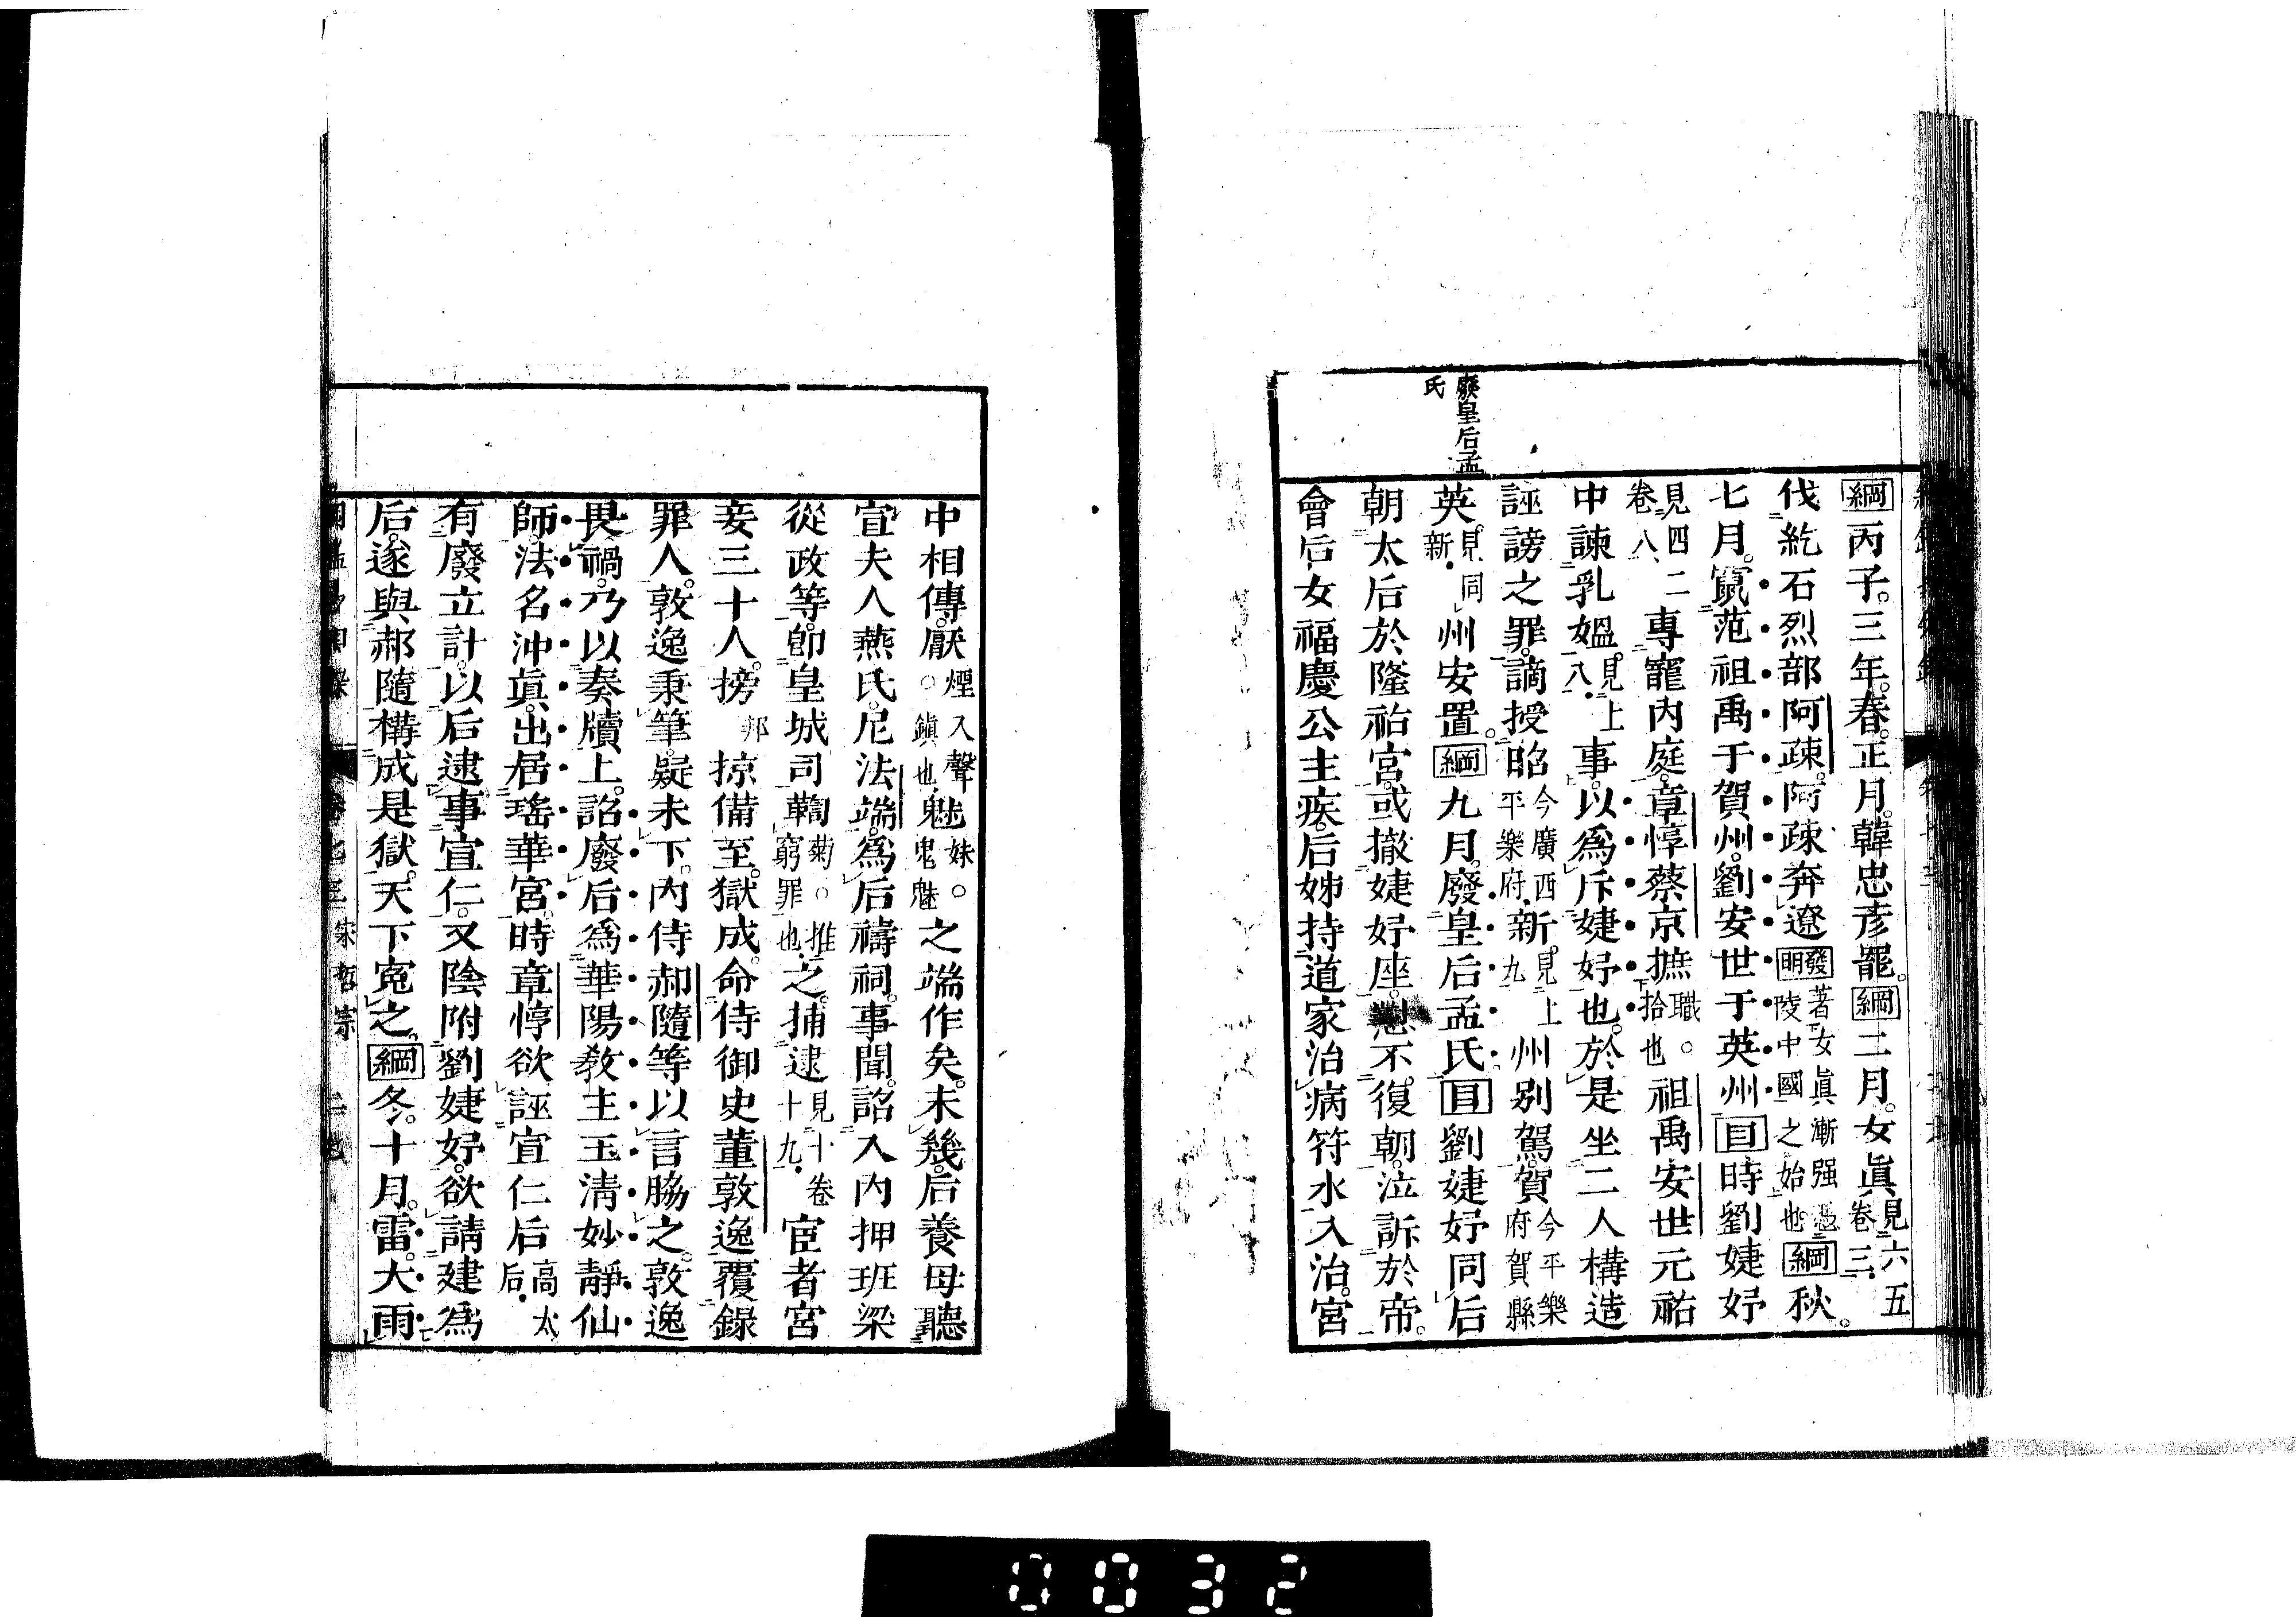 廢皇后孟
氏
綱丙子。三年。春。正月。韓忠彥罷。綱二月。女眞見六五卷三
伐紇石烈部阿疎。阿疎奔遼發明著女眞漸强憑陵中國之始也綱秋。
七月。竄范祖禹于賀州。劉安世于英州目時劉婕妤
見四二卷八專寵內庭。章惇蔡京摭職。拾也祖禹安世元祐
中諫乳媼。見上八事。以爲斥婕妤也。於是坐二人構造
誣謗之罪。謫授昭今廣西平樂府新。見上九州别駕。賀今平樂府賀縣
英。見同新州安置。綱九月。廢皇后孟氏目劉婕妤同后
朝太后於隆祐宮。或撤婕妤座。懟不復朝。泣訴於帝。
會后女福慶公主疾。后姊持道家治病符水入治。宮
中相傳。厭煙入聲。鎭也魅妹。鬼魅之端作矣。未幾。后養母聽
宣夫人燕氏。尼法端。爲后禱祠。事聞。詔入內押班梁
從政等。卽皇城司鞫菊。推窮罪也之。捕逮見十卷十九宦者宮
妾三十人。搒邦掠備至。獄成。命侍御史董敦逸覆錄
罪人。敦逸秉筆。疑未下。內侍郝隨等以言脇之。敦逸
畏禍。乃以奏牘上。詔廢后爲華陽敎主玉淸妙靜仙
師。法名沖眞。出居瑤華宮。時章惇欲誣宣仁后高太后
有廢立計。以后逮事宣仁。又陰附劉婕妤。欲請建爲
后。遂與郝隨構成是獄。天下寃之。綱冬。十月。雷。大雨
宋哲宗